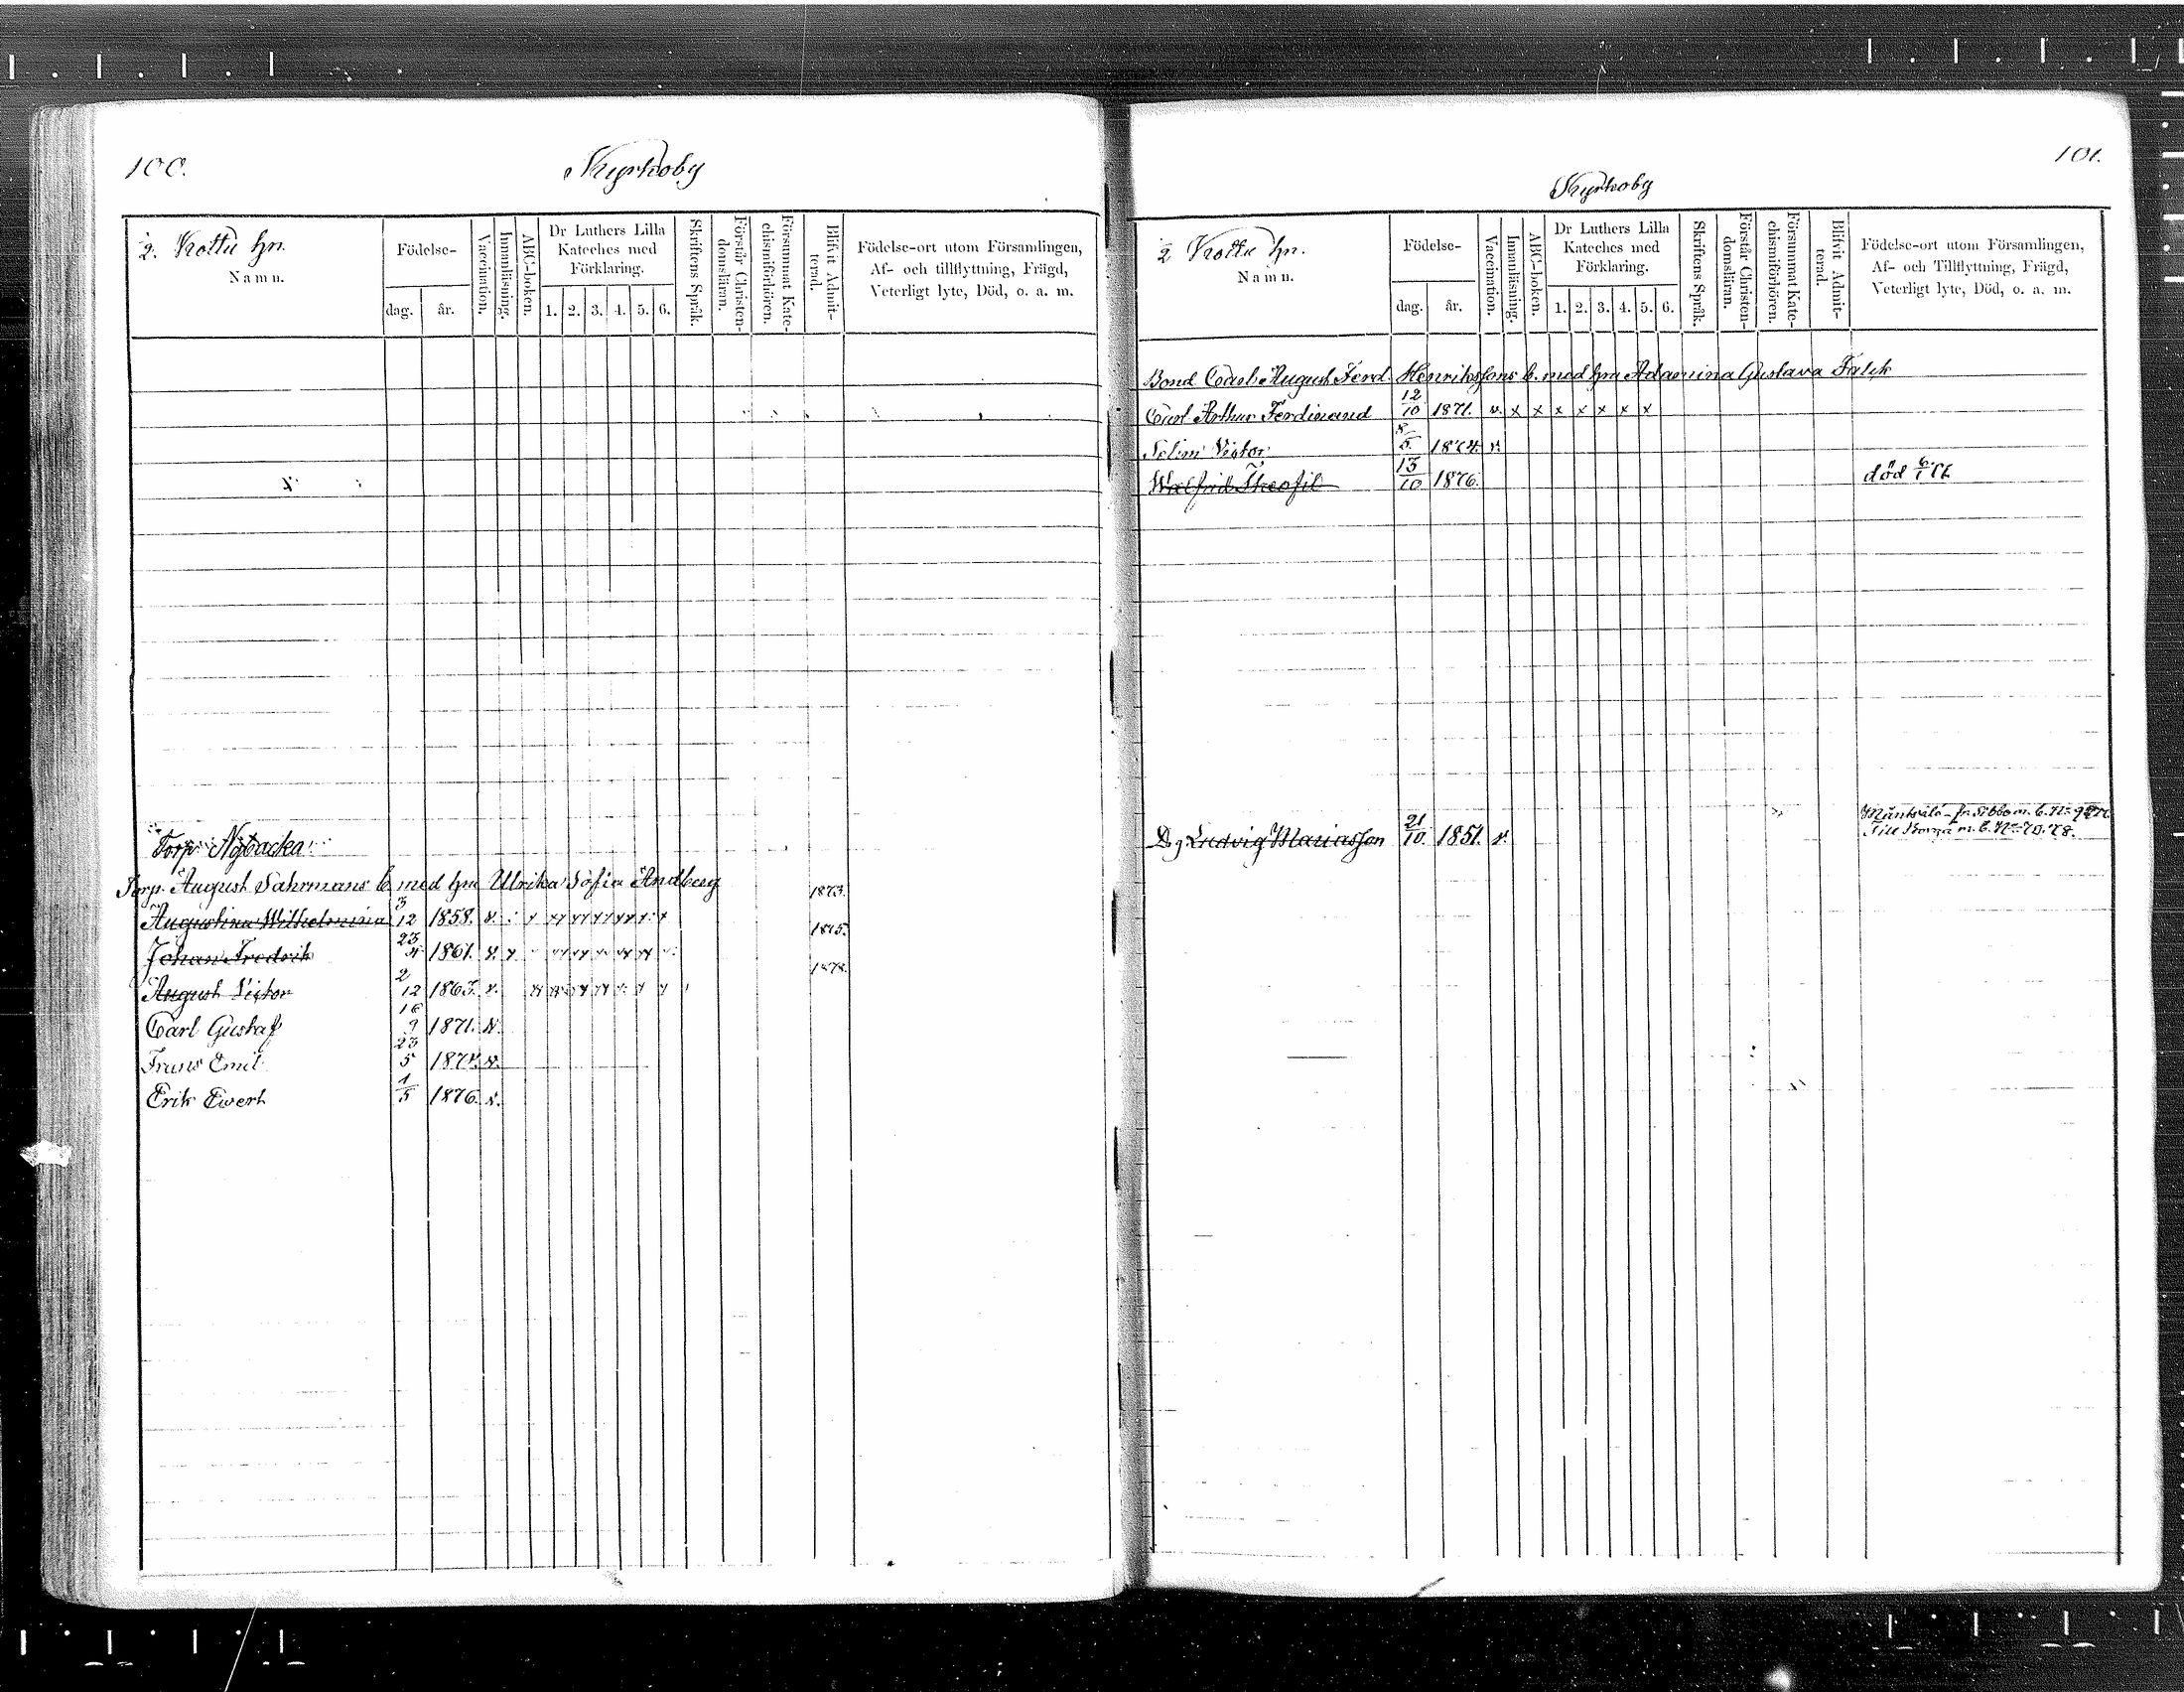 100.
Kyrkoby
2. Kottu hn.
Namn.
Födelse-
dag. år.
Vaccination.
Innanläsning.
ABC-boken.
Dr Luthers Lilla
Kateches med
Förklaring.
1. 2. 3. 4. 5. 6.
Skriftens Språk.
Förstår Christen-
domsläran.
Försummat Kate-
chismiförhören.
Blifvit Admit-
terad.
Födelse-ort utom Församlingen,
Af- och tillflyttning, Frägd,
Veterligt lyte, Död, o. a. m.
Torp Nybacka
Torp. August Sahrmans b. med hu Ulrika Sofia Andberg
Augustina Wilhelmina 3/12 1858. 1873.
Johan Fredrik 23/4 1861. 1875.
August Victor 2/12 1863. 1878.
Carl Gustaf 16/9 1871.
Frans Emil 23/5 1874.
Erik Evert 1/5 1876.
101.
Kyrkoby
2 Kottu hn.
Namn.
Födelse-
dag. år.
Vaccination.
Innanläsning.
ABC-boken.
Dr Luthers Lilla
Kateches med
Förklaring.
1. 2. 3. 4. 5. 6.
Skriftens Språk.
Förstår Christen-
domsläran.
Försummat Kate-
chismiförhören.
Blifvit Admit-
terad.
Födelse-ort utom Församlingen,
Af- och Tillflyttning, Frägd,
Veterligt lyte, Död, o. a. m.
Bond Carl August Ferd. Henrikssons b. med hu Adamina Gustava Falck
Carl Arthur Ferdinand 12/10 1871. x x x x x x x x
Selim Victor 8/5 1874.
Walfrid Theofil 13/10 1876. död 6/1
Dg Ludvig Mariasson 21/10 1851. fr. Sibbo m. b. No
Till Borgå m. b. No 70. 78.